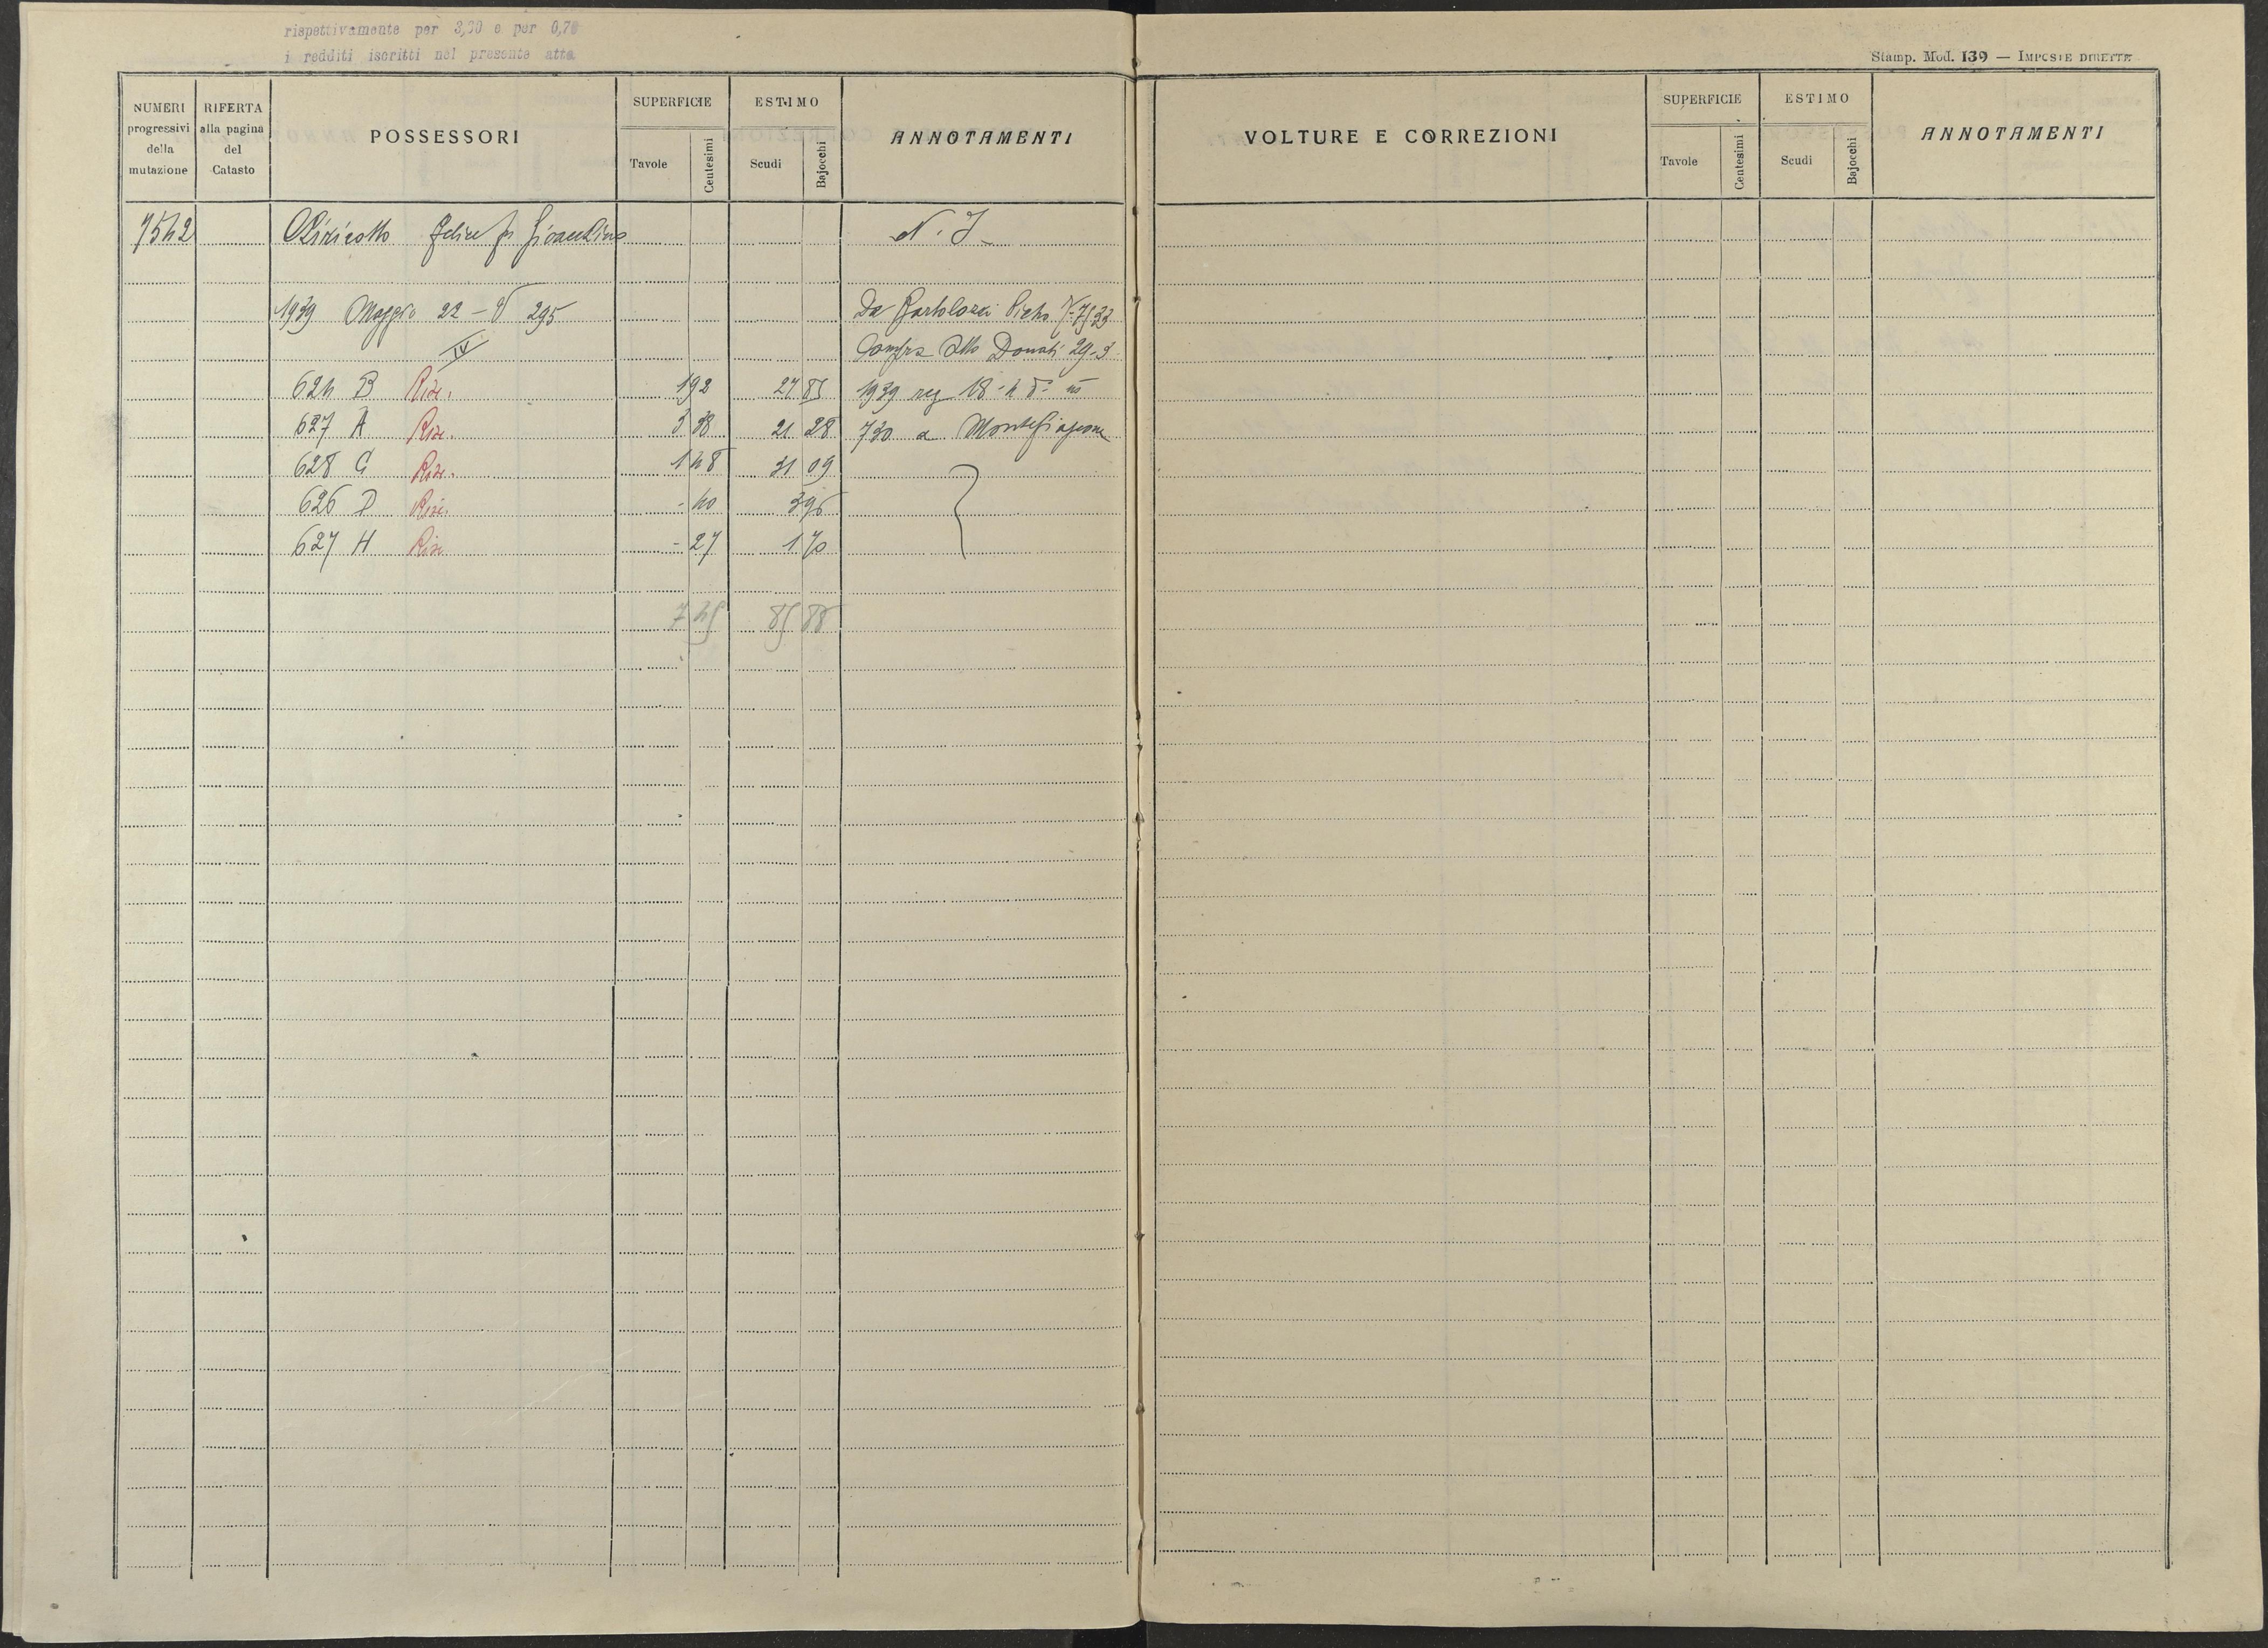 rispettivamente per 3,30 e per 0,70
i redditi iscritti nel presente atto
NUMERI progressivi della mutazione
RIFERTA alla pagina del Catasto
POSSESSORI
SUPERFICIE
Tavole
Centesimi
ESTIMO
Scudi
Bajocchi
ANNOTAMENTI
7542 Felice fu Gioacchino N. I
1939 Maggio 22 - V 295 Da Bartolozzi Pietro 7533
IV Compra Atto Donati 29-3
624 B Rize. 1 92 27 85 1939 reg 18-4 d° n°
627 A Rize. 3 38 21 28 730 a Montefiascone
628 C Rize. 1 48 31 09
626 D Rize. - 40 3 96
627 H Rize - 27 1 70
7 45 85 88
Stamp. Mod. 139 — IMPOSTE DIRETTE
VOLTURE E CORREZIONI
SUPERFICIE
Tavole
Centesimi
ESTIMO
Scudi
Bajocchi
ANNOTAMENTI